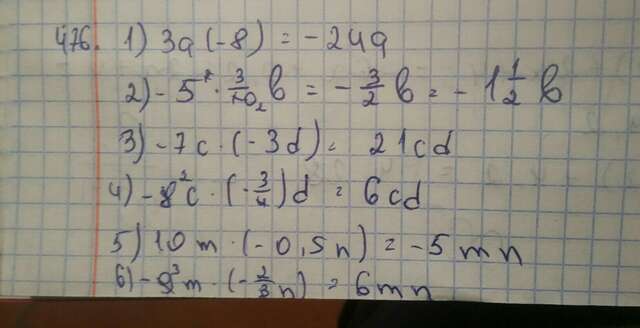 476. 1) 3a (-8) = -24a
2) -5¹ · 3/10₂ b = - 3/2 b = - 1 1/2 b
3) -7c · (-3d) = 21cd
4) -8²c · (-3/4)d = 6cd
5) 10m · (-0,5n) = -5mn
6) -9³m · (-2/3n) = 6mn